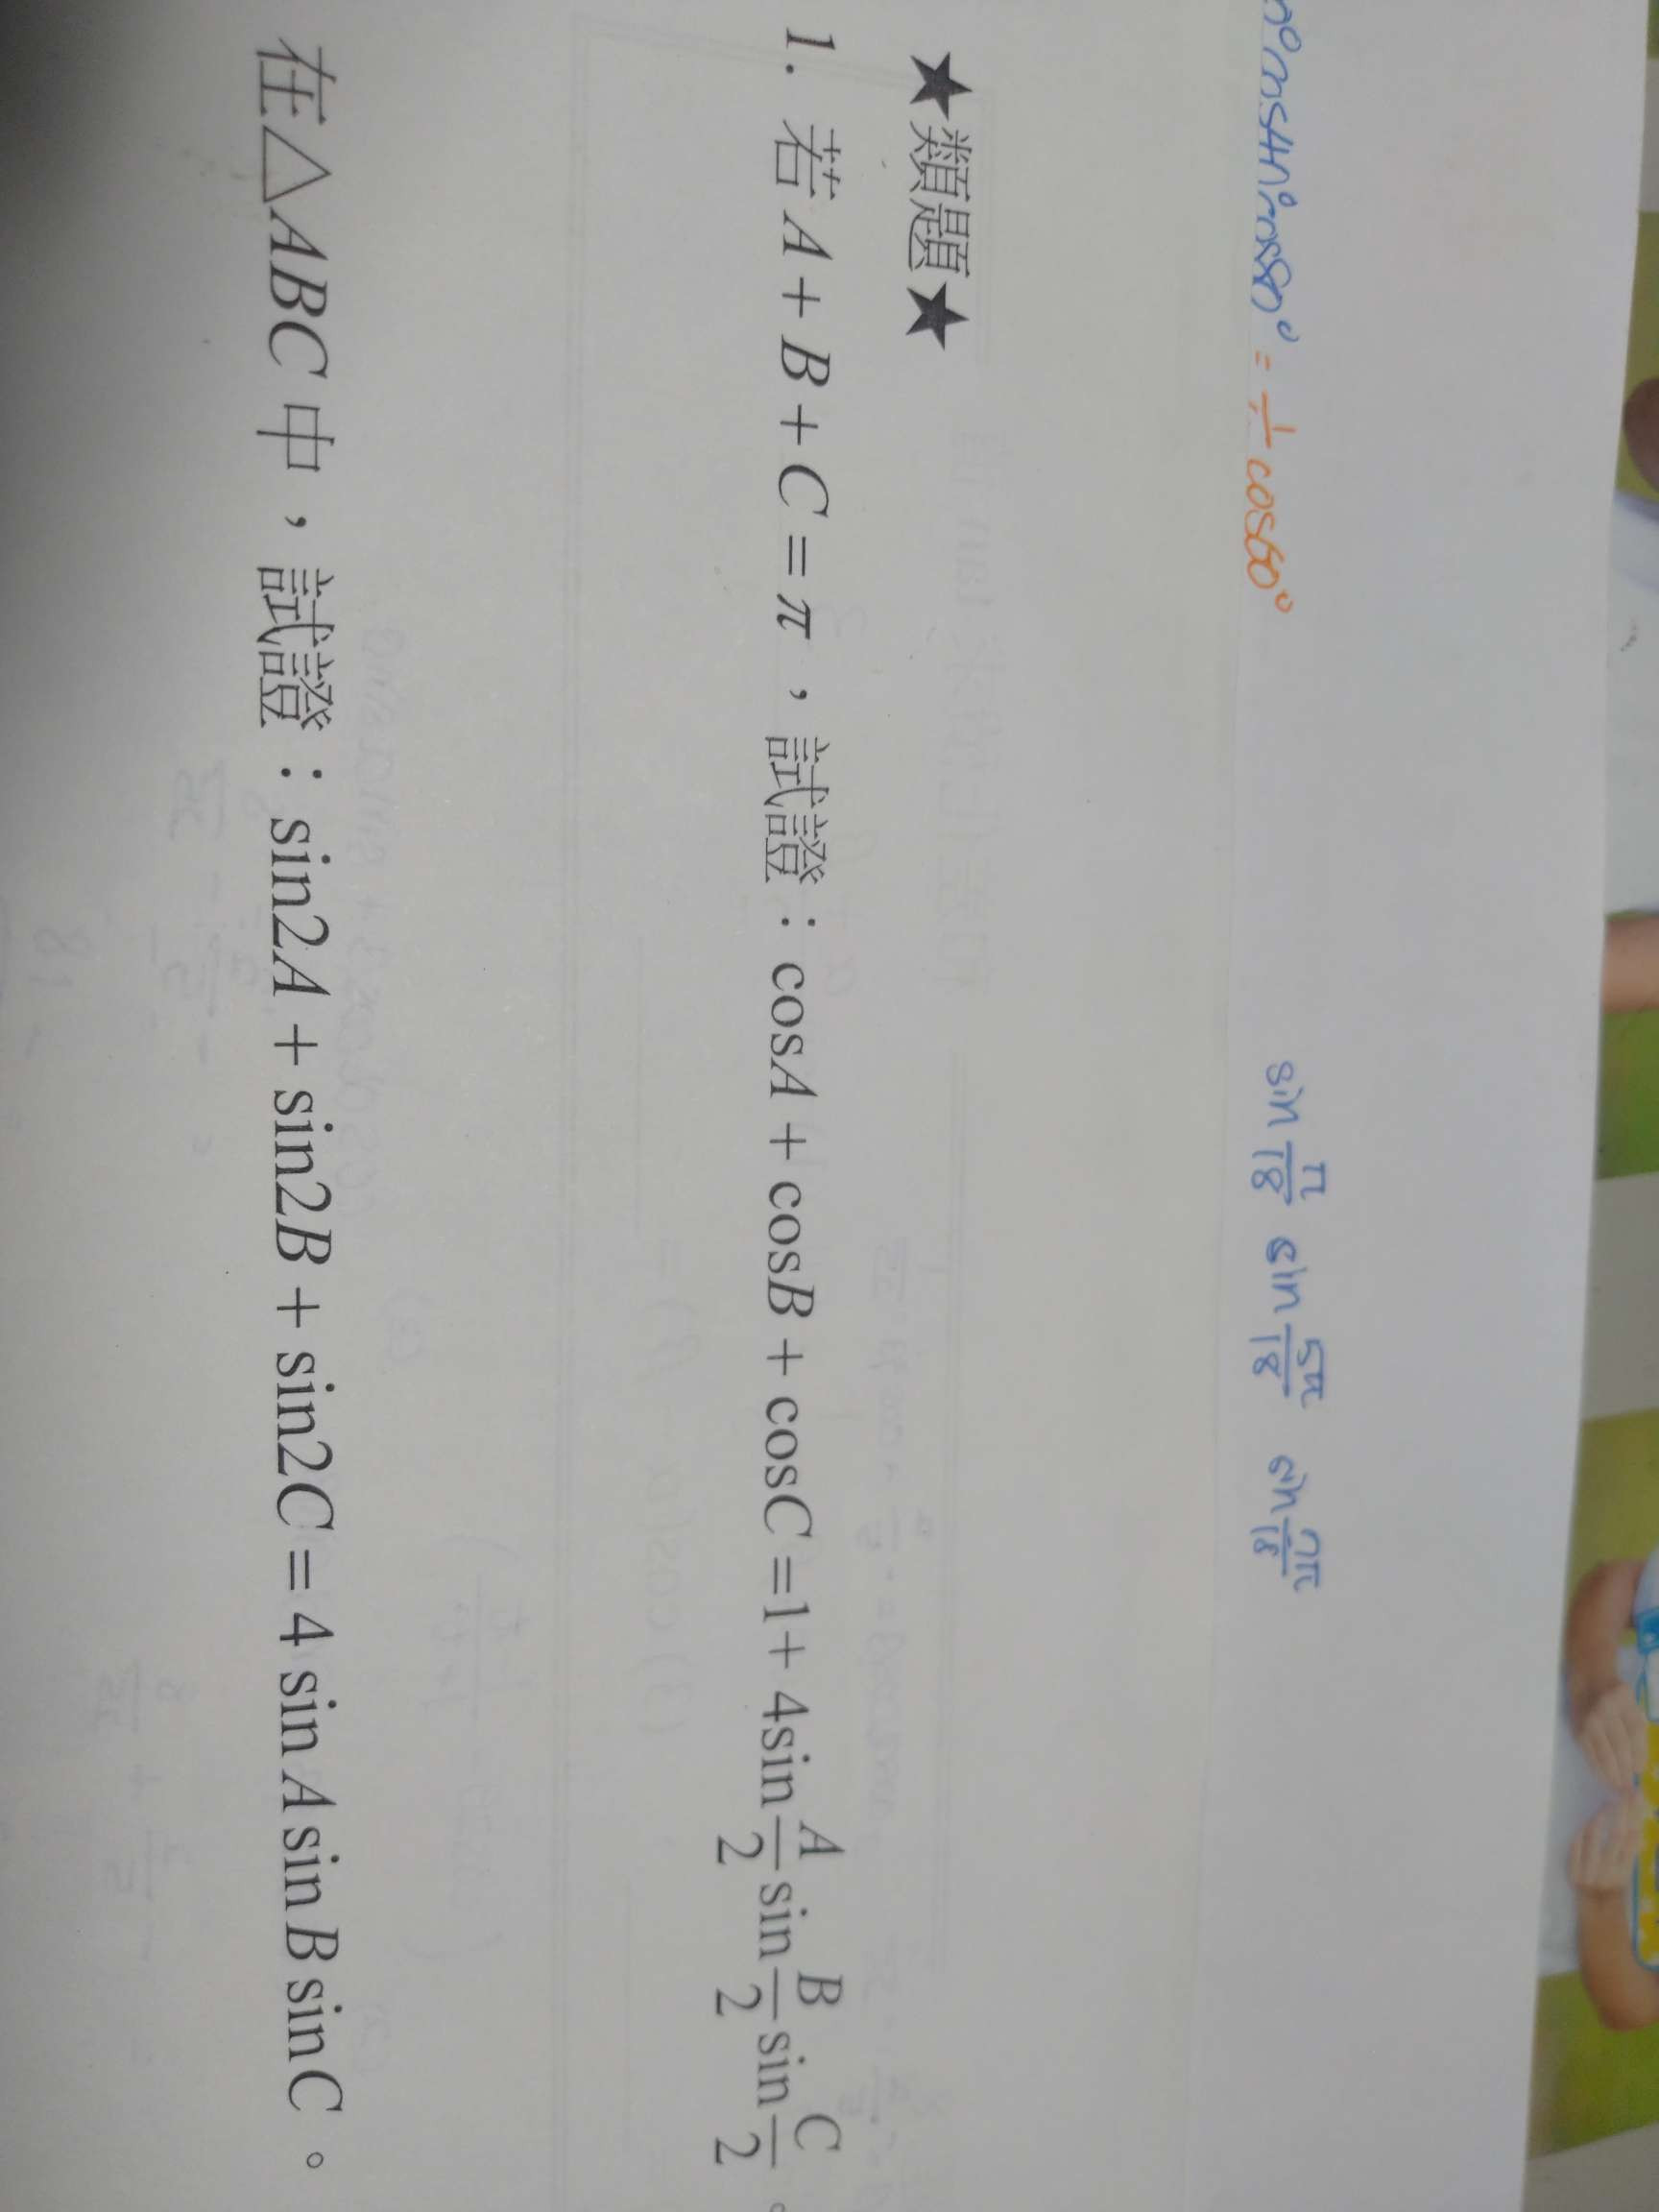 cos80° = 1 cos60°
sin π/18 sin 5π/18 sin 7π/18
★類題★
1. 若 A + B + C = π，試證：cosA + cosB + cosC = 1 + 4sin A/2 sin B/2 sin C/2。
在△ABC 中，試證：sin2A + sin2B + sin2C = 4 sin A sin B sin C。